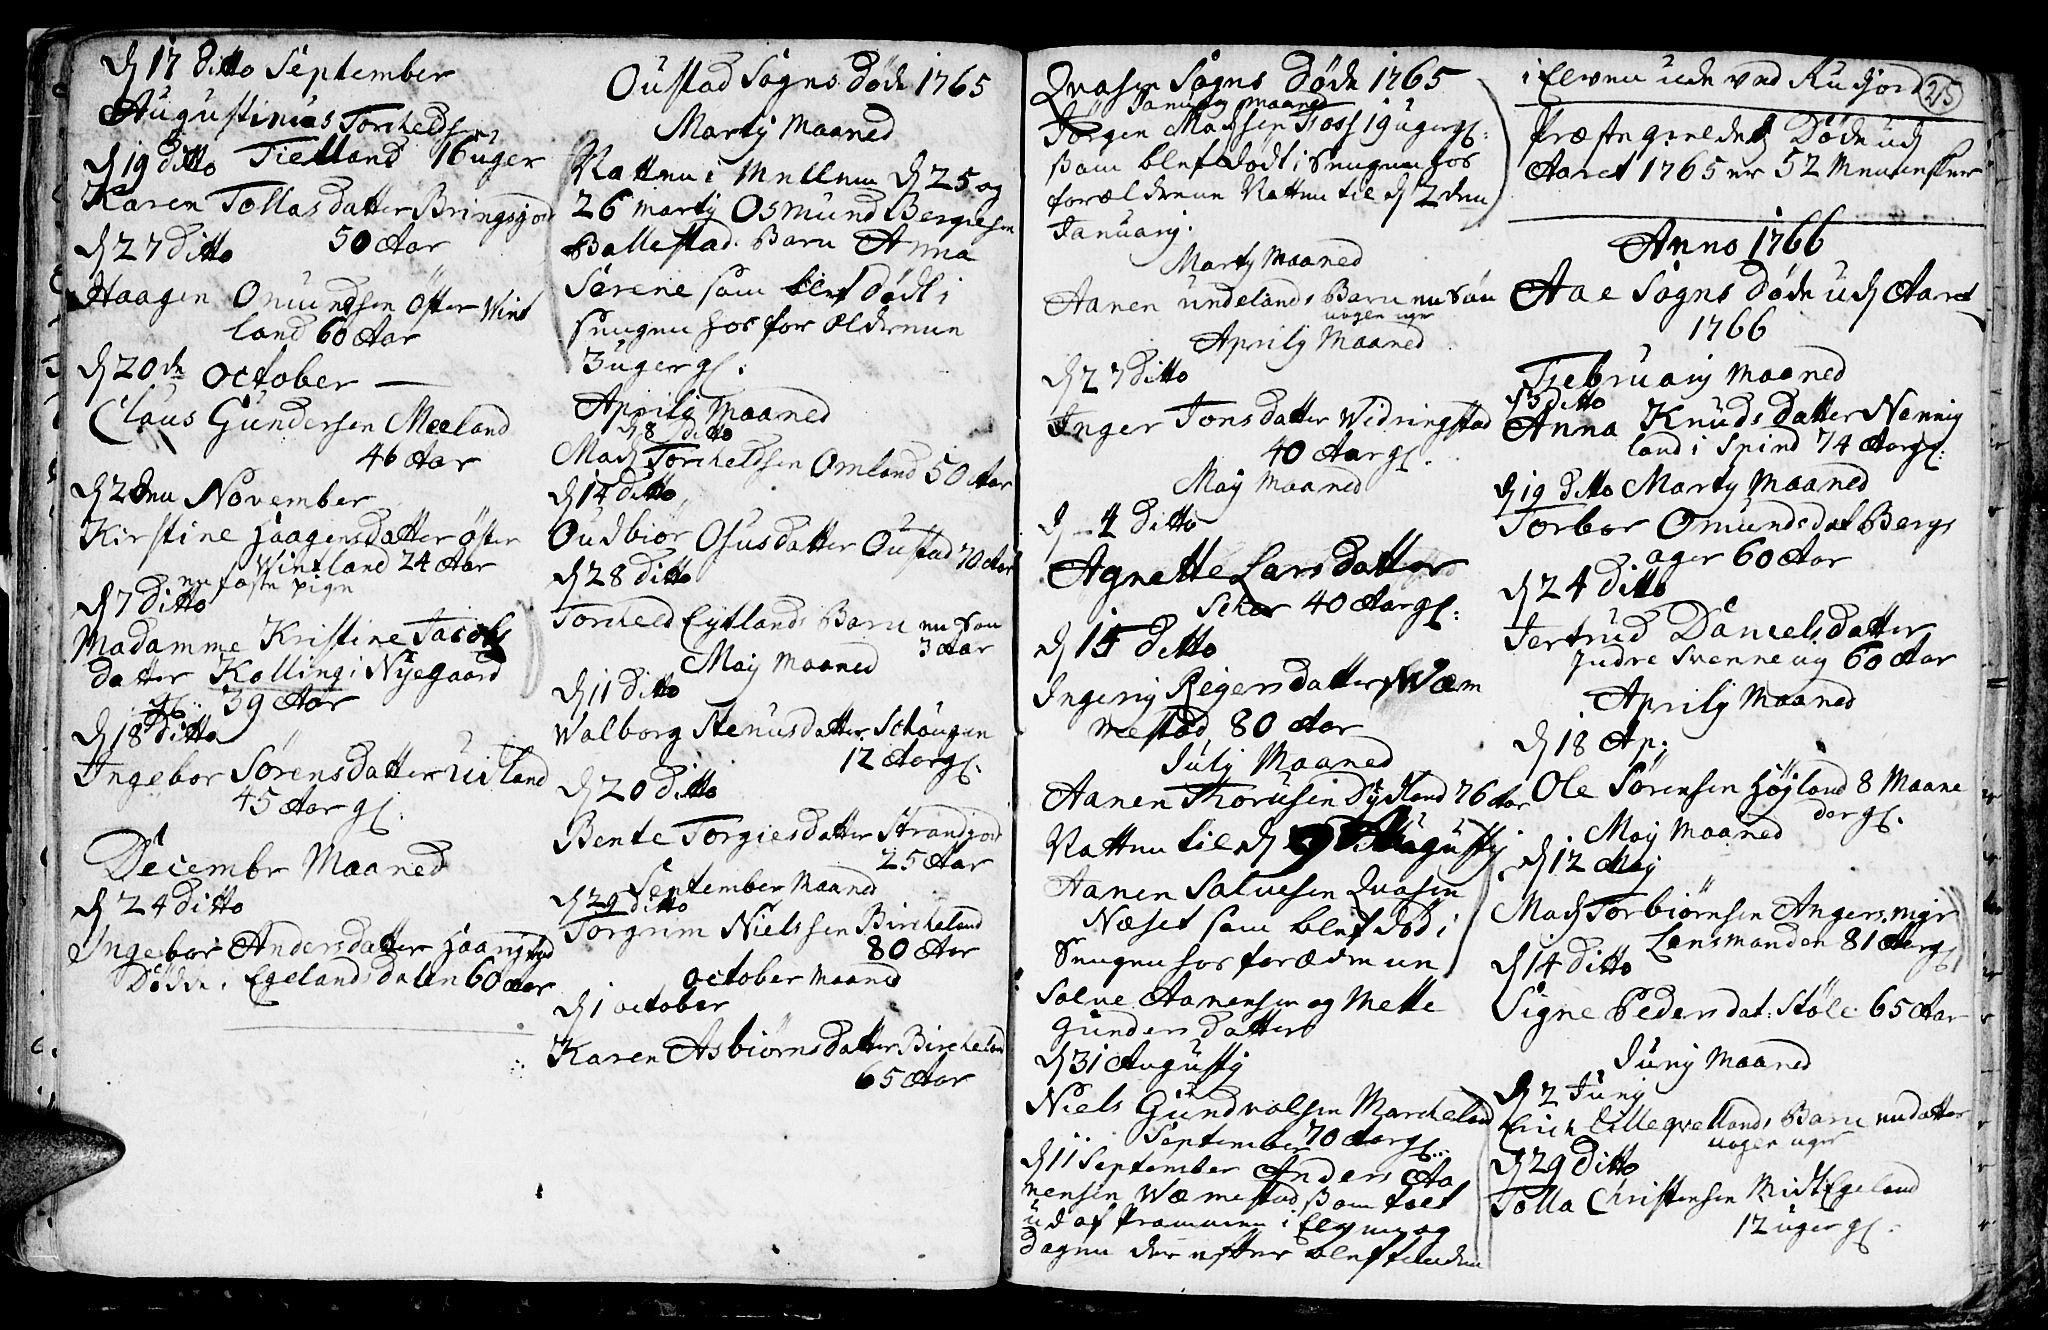 d 17 ditto September
Augustinus Torcheldsen
d 19 ditto Tietland 16 uger
Karen Tollas datter Bringsjord
d 27 ditto 50 Aar
Haagen Omundsen Öster Wint
land 60 Aar
d 20de October
Claus Gundersen Meeland
46 Aar
d 2den November
Kirstine Haagensdatter Öster
Wintland 24 Aar
d 7 ditto en faste pige
Madamme Kristine Jacobs
datter Kolling i Nyegaard
gl. 39 Aar
d 18 ditto
Ingebor Sörensdatter Uidland
45 Aar gl.
December Maaned
d 24 ditto
Ingebor Andersdatter Haangstad
Döde i Egelandsdalen 60 aar
Oustad Sogns Döde 1765
Marty Maaned
Natten i Mellem d 25 og
26 marty Osmund Bergiesen
Ballestad Barn Anna
Serene som blef dödt i
Sengen hos forælderne
3 uger gl.
Aprily Maaned
d 8 ditto
Mads Torcheldsen Omland 50 Aar
d 14 ditto
Oudbiör Osusdatter Oustad 70 Aar
d 28 ditto
Torkeld Eytlands Barn en Sön
3 Aar
May Maaned
d 11 ditto
Walborg Stenusdatter Schöugen
12 Aar gl.
d 20 ditto
Bente Torgiesdatter Strandjord
25 Aar
September Maaned
d 29 ditto
Torgrim Nielssen Bircheland
80 Aar
October Maaned
d 1 october
Karen Asbiörnsdatter Bircheland
65 Aar
Qvasen Sogns Döde 1765
January Maaned
Jörgen Madsen Foss 19 uger gl.
Som blef dödt i Sengen hos
forælderne Natten til d 2den
January.
Marty Maaned
Aanen Undelands Barn en Sön
nogen uger
Aprily Maaned
d 27 ditto
Inger Tonsdatter Widringstad
40 Aar gl.
May Maaned
d 4 ditto
Agnette Larsdatter
40 Aar gl.
d 15 ditto
Ingerig Reiersdatter Wem
mestad 80 Aar
July Maaned
Aanen Thorusen Dydland 76 Aar
Natten til d 9 Augusty
Aanen Salvesen Qvasen
Næset som blef död i
Sengen hos forælderne
Salve Aanensen og Mette
Gundersdatter
d 31 Augusty
Niels Gundvalsen Marcheland
September 70 Aar gl.
d 11 September Anders Aa
nensen Wæmestad som falt
ud af Prammen i Elven og
dagen der efter blef funden
i Elven ude ved Rudjord 25
Præste gieldets Döde udj
Aaret 1765 er 52 Mennesker
Anno 1766
Aae Sogns döde udj Aaret
1766
February Maaned
d 3 ditto
Anna Knudsdatter Nennig
land i Spind 74 Aar gl.
d 19 ditto Marty Maaned
Torbor Omundsdat Bergs
ager 60 Aar
d 24 ditto
Jertrud Danielsdatter
Indre Svennevig 60 Aar
Aprily Maaned
d 18 Ap:
Ole Sörensen Höjland 8 Maane
der gl.
May Maaned
d 12 May
Mads Torbiörnsen Angersmyr
Lensmanden 81 Aar gl
d 14 ditto
Signe Pedersdat: Stöle 65 Aar
Juny Maaned
d 2 Juny
Erich Lilleqvellands Barn en datter
nogen uger
d 29 ditto
Tolla Christensen Midt Egeland
12 uger gl.